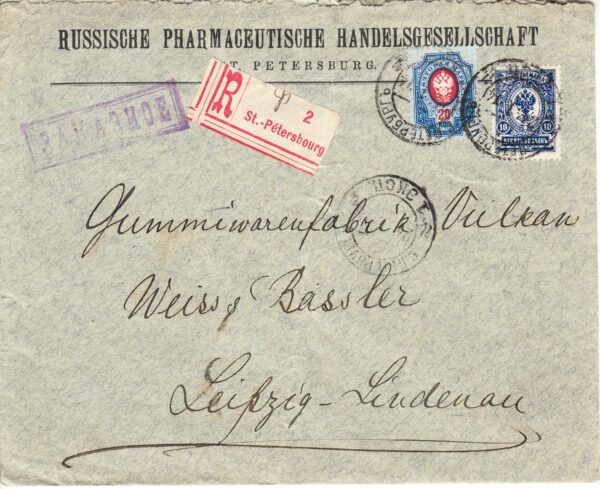 RUSSISCHE PHARMACEUTISCHE HANDELSGESELLSCHAFT
ST. PETERSBURG.
ЗАКАЗНОЕ
R
2
St.-Pétersbourg
20
10
10
ДЕСЯТЬ КОПѢЕКЪ
Gummiwarenfabrik Vulkan
Weiss & Bässler
Leipzig-Lindenau